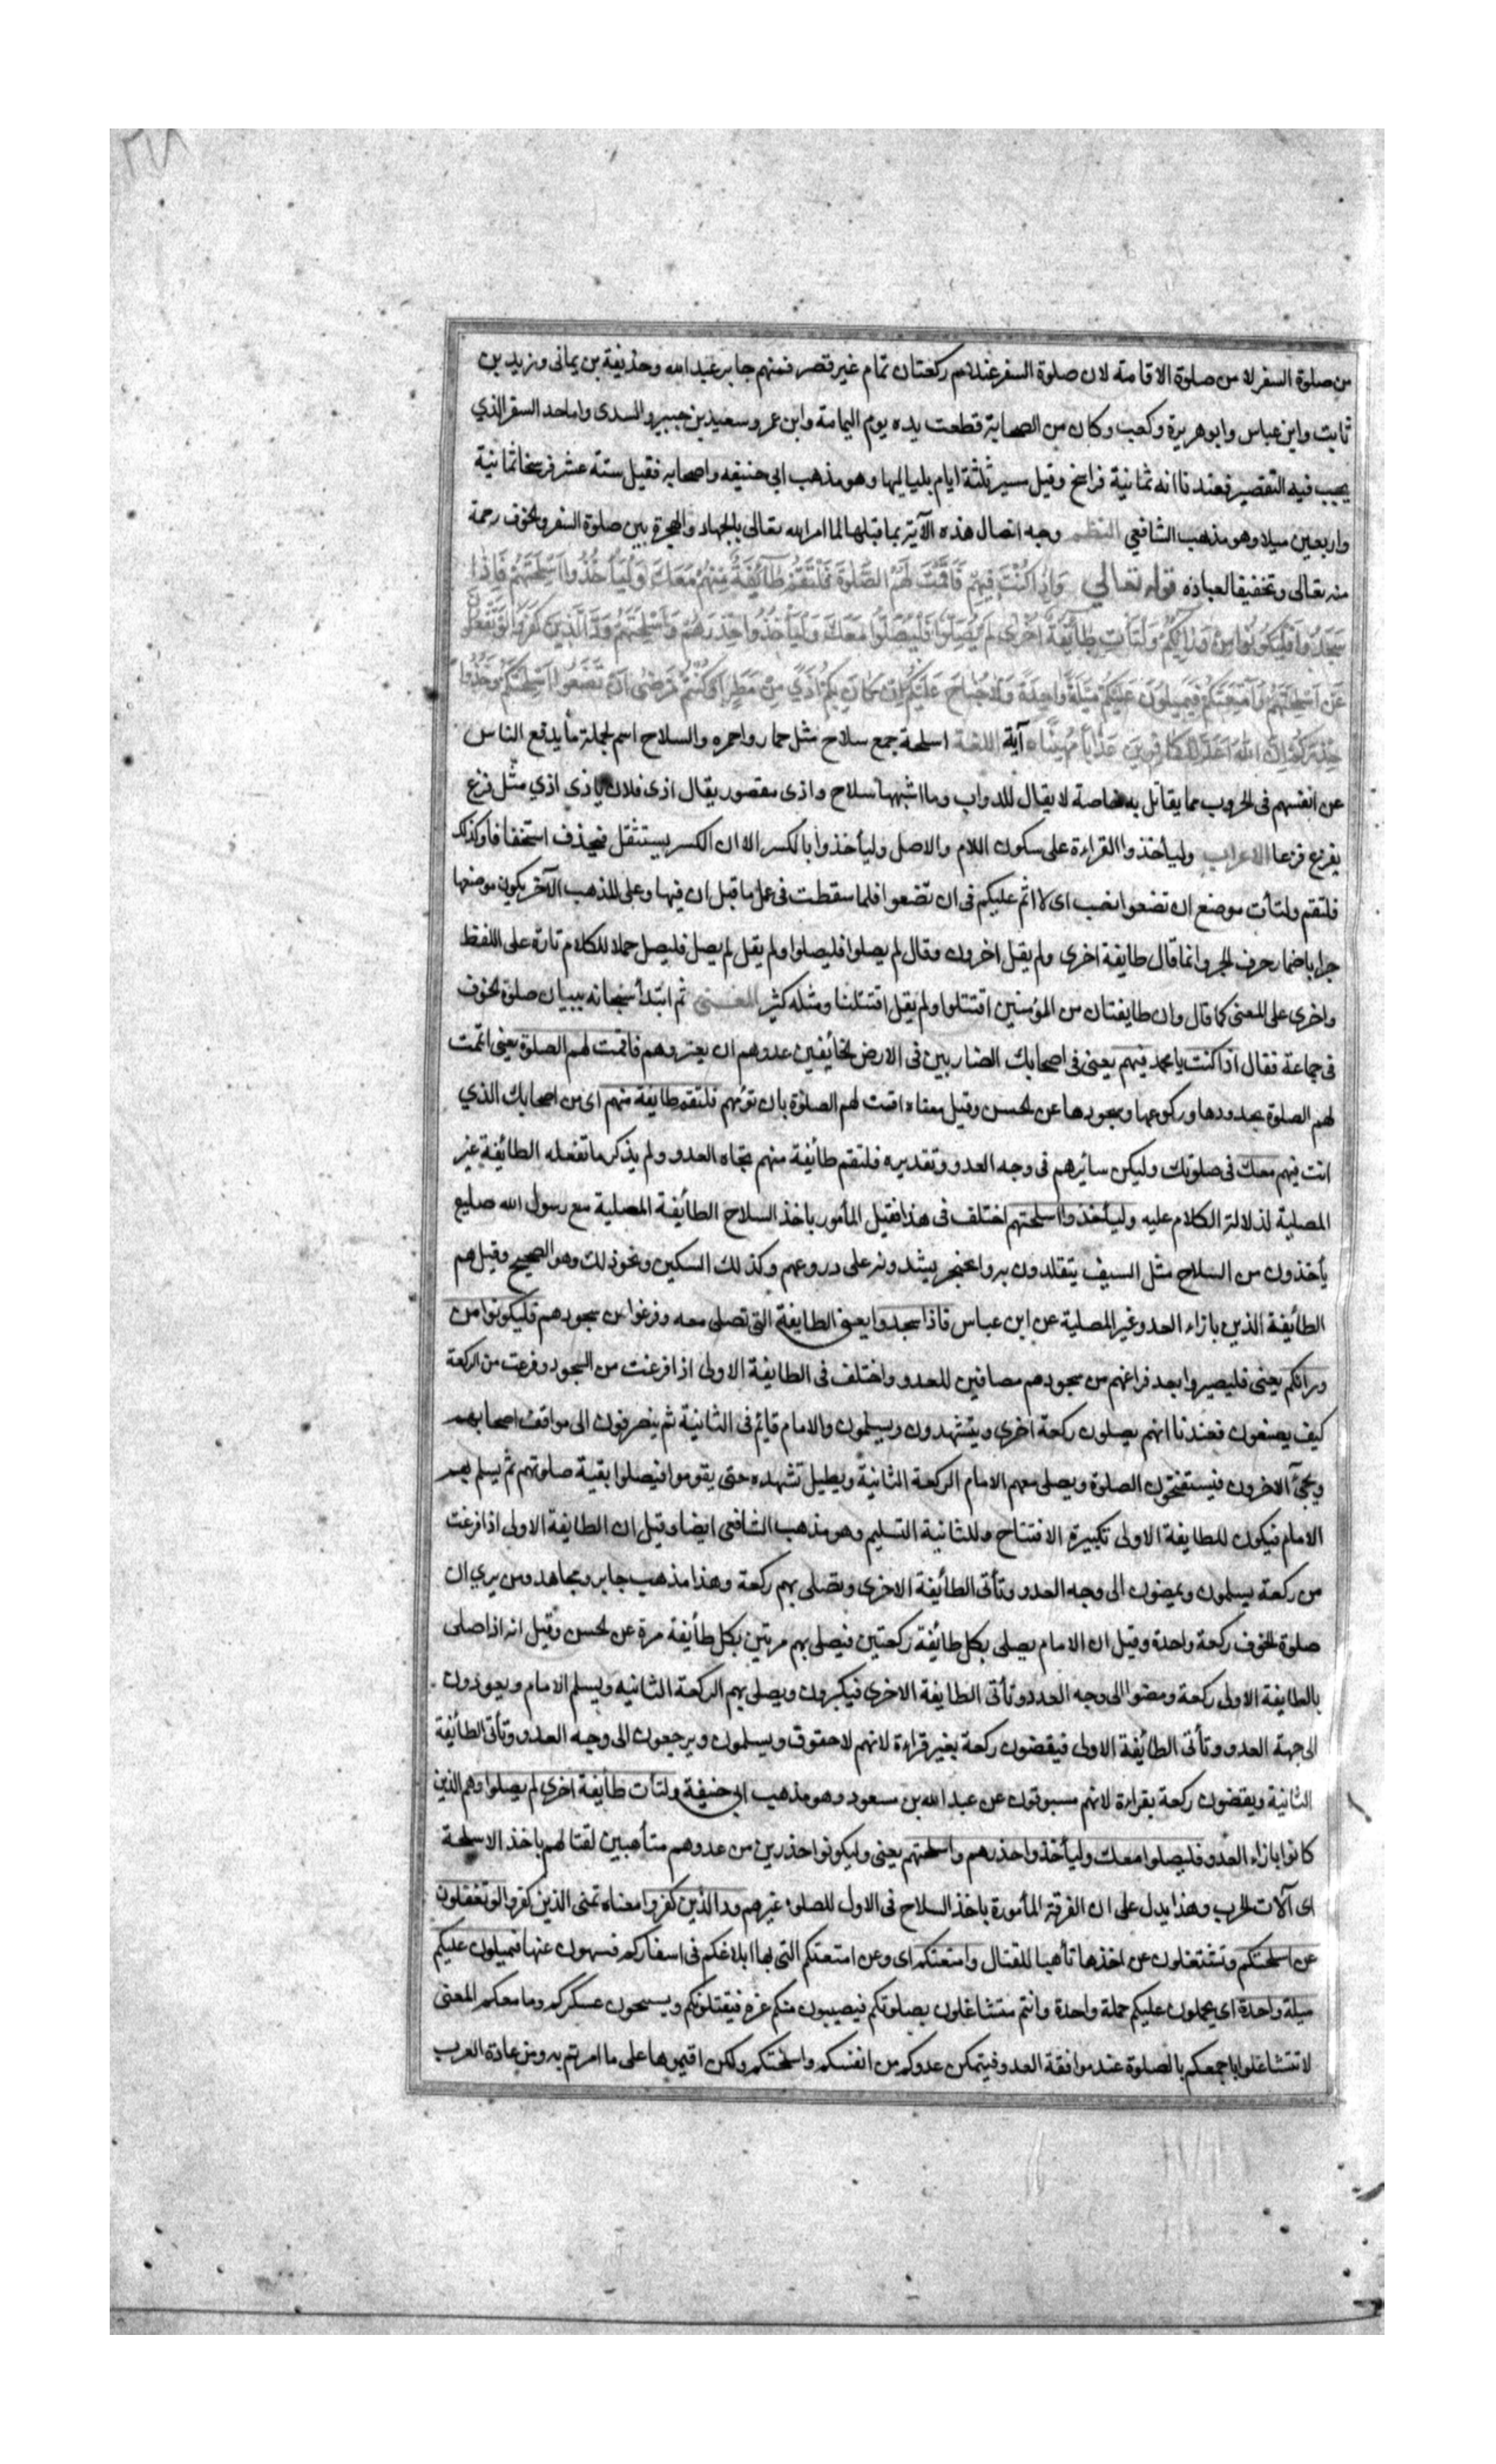 من صلوة السفر لا من صلوة الاقامة لان صلوة السفر عندهم ركعتان تمام غير قصر فمنهم جابر عبد الله وحذيفة بن يمانى وزيد بن
ثابت وابن عباس وابو هريرة وكعب وكان من الصحابة قطعت يده يوم اليمامة وابن عمر وسعيد بن جبير والسدى واما حد السفر الذي
يجب فيه التقصير فعندنا انه ثمانية فراسخ وقيل مسير ثلثة ايام بلياليها وهو مذهب ابى حنيفه واصحابه فقيل ستة عشر فرسخا ثمانية
واربعين ميلا وهو مذهب الشافعي النظم وجه اتصال هذه الآية بما قبلها لما امر الله تعالى بالجهاد والهجرة بين صلوة السفر والخوف رحمة
منه تعالى وتخفيفا لعباده قوله تعالى وَاِذَا كُنْتَ فِيهِمْ فَاَقَمْتَ لَهُمُ الصَّلٰوةَ فَلْتَقُمْ طَائِفَةٌ مِنْهُمْ مَعَكَ وَلْيَأْخُذُوا اَسْلِحَتَهُمْ فَاِذَا
سَجَدُوا فَلْيَكُونُوا مِنْ وَرَائِكُمْ وَلْتَأْتِ طَائِفَةٌ اُخْرٰى لَمْ يُصَلُّوا فَلْيُصَلُّوا مَعَكَ وَلْيَأْخُذُوا حِذْرَهُمْ وَاَسْلِحَتَهُمْ وَدَّ الَّذِينَ كَفَرُوا لَوْ تَغْفُلُونَ
عَنْ اَسْلِحَتِكُمْ وَاَمْتِعَتِكُمْ فَيَمِيلُونَ عَلَيْكُمْ مَيْلَةً وَاحِدَةً وَلَا جُنَاحَ عَلَيْكُمْ اِنْ كَانَ بِكُمْ اَذًى مِنْ مَطَرٍ اَوْ كُنْتُمْ مَرْضٰى اَنْ تَضَعُوا اَسْلِحَتَكُمْ وَخُذُوا
حِذْرَكُمْ اِنَّ اللهَ اَعَدَّ لِلْكَافِرِينَ عَذَابًا مُهِينًا آية اللغة اسلحة جمع سلاح مثل حمار واحمره والسلاح اسم لجملة ما يدفع الناس
عن انفسهم فى الحروب مما يقاتل به خاصة لا يقال للدواب وما اشبهها سلاح واذى مقصور يقال اذى فلان ياذى اذي مثل فزع
يفزع فزعا الاعراب وليأخذوا القراءة على سكون اللام والاصل وليأخذوا بالكسر الا ان الكسر يستثقل فيحذف استخفافا وكذلك
فلتقم ولتأت موضع ان تضعوا نصب اى لا اثم عليكم فى ان تضعوا فلما سقطت فى عمل ما قبل ان فيها وعلى المذهب الآخر يكون موضعها
جرا باضمار حرف الجر وانما قال طايفة اخرى ولم يقل اخرون وقال لم يصلوا فليصلوا ولم يقل لم يصل فليصل حملا للكلام تارة على اللفظ
واخرى على المعنى كما قال وان طايفتان من المؤمنين اقتتلوا ولم يقل اقتتلتا ومثله كثير المعنى ثم ابتدأ سبحانه ببيان صلوة الخوف
فى جماعة فقال اذا كنت يا محمد فيهم يعنى فى اصحابك الضاربين فى الارض الخائفين عدوهم ان يعتروهم فاقمت لهم الصلوة يعنى اتممت
لهم الصلوة بحدودها وركوعها وسجودها عن الحسن وقيل معناه اقمت لهم الصلوة بان تؤمهم فلتقم طايفة منهم اى من اصحابك الذي
انت فيهم معك فى صلوتك وليكن سائرهم فى وجه العدو وتقديره فلتقم طائفة منهم تجاه العدو ولم يذكر ما تفعله الطائفة غير
المصلية لدلالة الكلام عليه وليأخذوا اسلحتهم اختلف فى هذا فقيل المأمور باخذ السلاح الطائفة المصلية مع رسول الله صليع
يأخذون من السلاح مثل السيف يتقلدون به والخنجر يشدونه على دروعهم وكذلك السكين ونحو ذلك وهو الصحيح وقيل هم
الطائفة الذين بازاء العدو غير المصلية عن ابن عباس فاذا سجدوا يعنى الطايفة التى تصلى معه وفرغوا من سجودهم فليكونوا من
ورائكم يعنى فليصيروا بعد فراغهم من سجودهم مصافين للعدو واختلف فى الطايفة الاولى اذا فرغت من السجود وفرغت من الركعة
كيف يصنعون فعندنا انهم يصلون ركعة اخرى ويتشهدون ويسلمون والامام قائم فى الثانية ثم ينصرفون الى مواقف اصحابهم
ويجئ الاخرون فيستفتحون الصلوة ويصلى معهم الامام الركعة الثانية ويطيل تشهده حتى يقوموا فيصلوا بقية صلوتهم ثم يسلم بهم
الامام فيكون للطايفة الاولى تكبيرة الافتتاح وللثانية التسليم وهو مذهب الشافعى ايضا وقيل ان الطايفة الاولى اذا فرغت
من ركعة يسلمون ويمضون الى وجه العدو وتأتى الطائفة الاخرى ويصلى بهم ركعة وهذا مذهب جابر ومجاهد ومن يري ان
صلوة الخوف ركعة واحدة وقيل ان الامام يصلى بكل طائفة ركعتين فيصلى بهم مرتين بكل طأيفة مرة عن الحسن وقيل انه اذا صلى
بالطايفة الاولى ركعة ومضوا الى وجه العدو وتأتى الطايفة الاخرى فيكبرون ويصلى بهم الركعة الثانيه ويسلم الامام ويعودون
الى جهة العدو وتأتى الطائفة الاولى فيقضون ركعة بغير قراءة لانهم لاحقوق ويسلمون ويرجعون الى وجه العدو وتأتى الطائفة
الثانية ويقضون ركعة بقراءة لانهم مسبوقون عن عبد الله بن مسعود وهو مذهب ابى حنيفة ولتأت طأيفة اخرى لم يصلوا وهم الذين
كانوا بازاء العدو فليصلوا معك وليأخذوا حذرهم واسلحتهم يعنى وليكونوا حذرين من عدوهم متأهبين لقتالهم باخذ الاسلحة
اى آلات الحرب وهذا يدل على ان الفرقة المأمورة باخذ السلاح فى الاول للصلوة غيرهم ود الذين كفروا معناه تمنى الذين كفروا لو تغفلون
عن اسلحتكم وتشتغلون عن اخذها تأهبا للقتال وامتعتكم اى وعن امتعتكم التى بها ابلاغكم فى اسفاركم فسهون عنها فيميلون عليكم
ميلة واحدة اى يحملون عليكم حملة واحدة وانتم متشاغلون بصلوتكم فيصيبون منكم غرة فيقتلونكم ويسبحون عسكركم وما معكم المعنى
لا تتشاغلوا باجمعكم بالصلوة عند موافقة العدو فيتمكن عدوكم من انفسكم واسلحتكم ولكن اقيموها على ما امرتم به ومن عادة العرب